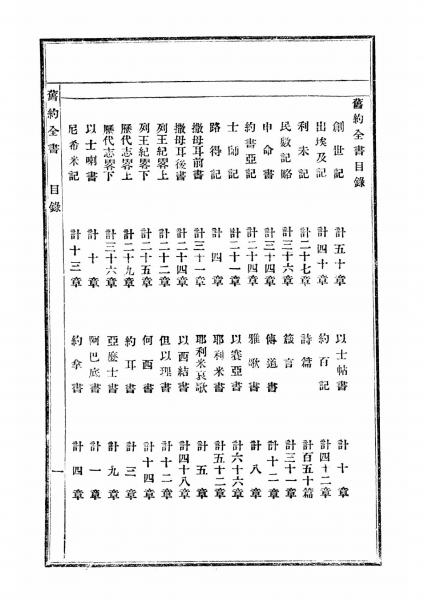 舊約全書目錄
創世記 計五十章 以士帖書 計十章
出埃及記 計四十章 約百記 計四十二章
利未記 計二十七章 詩篇 計百五十篇
民數記略 計三十六章 箴言 計三十一章
申命書 計三十四章 傳道書 計十二章
約書亞記 計二十四章 雅歌書 計八章
士師記 計二十一章 以賽亞書 計六十六章
路得記 計四章 耶利米書 計五十二章
撒母耳前書 計三十一章 耶利米哀歌 計五章
撒母耳後書 計二十四章 以西結書 計四十八章
列王紀畧上 計二十二章 但以理書 計十二章
列王紀畧下 計二十五章 何西書 計十四章
歷代志畧上 計二十九章 約耳書 計三章
歷代志畧下 計三十六章 亞麼士書 計九章
以士喇書 計十章 阿巴底書 計一章
尼希米記 計十三章 約拿書 計四章
舊約全書 目錄 一